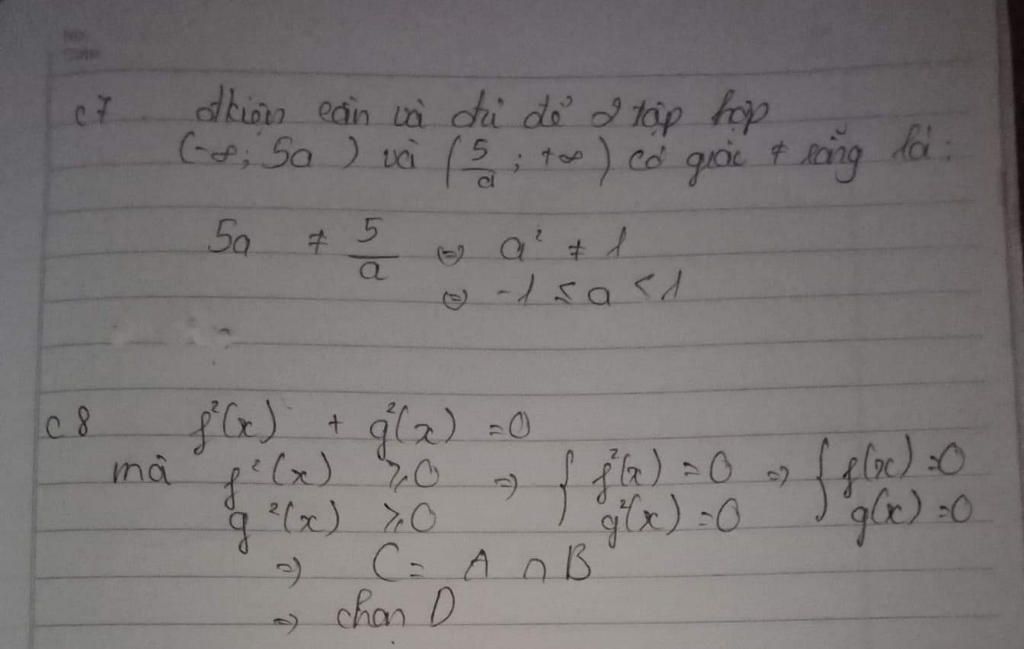 c7 đkiện cần và đủ để 2 tập hợp
(-∞; 5a) và (5/a; +∞) có giao ≠ rỗng là:
5a ≠ 5/a ⇔ a² ≠ 1
⇔ -1 ≤ a < 1
c8 f²(x) + g²(x) = 0
mà f²(x) ≥ 0 ⇒ { f²(x) = 0 ⇒ { f(x) = 0
g²(x) ≥ 0 g²(x) = 0 g(x) = 0
⇒ C = A ∩ B
⇒ chọn D